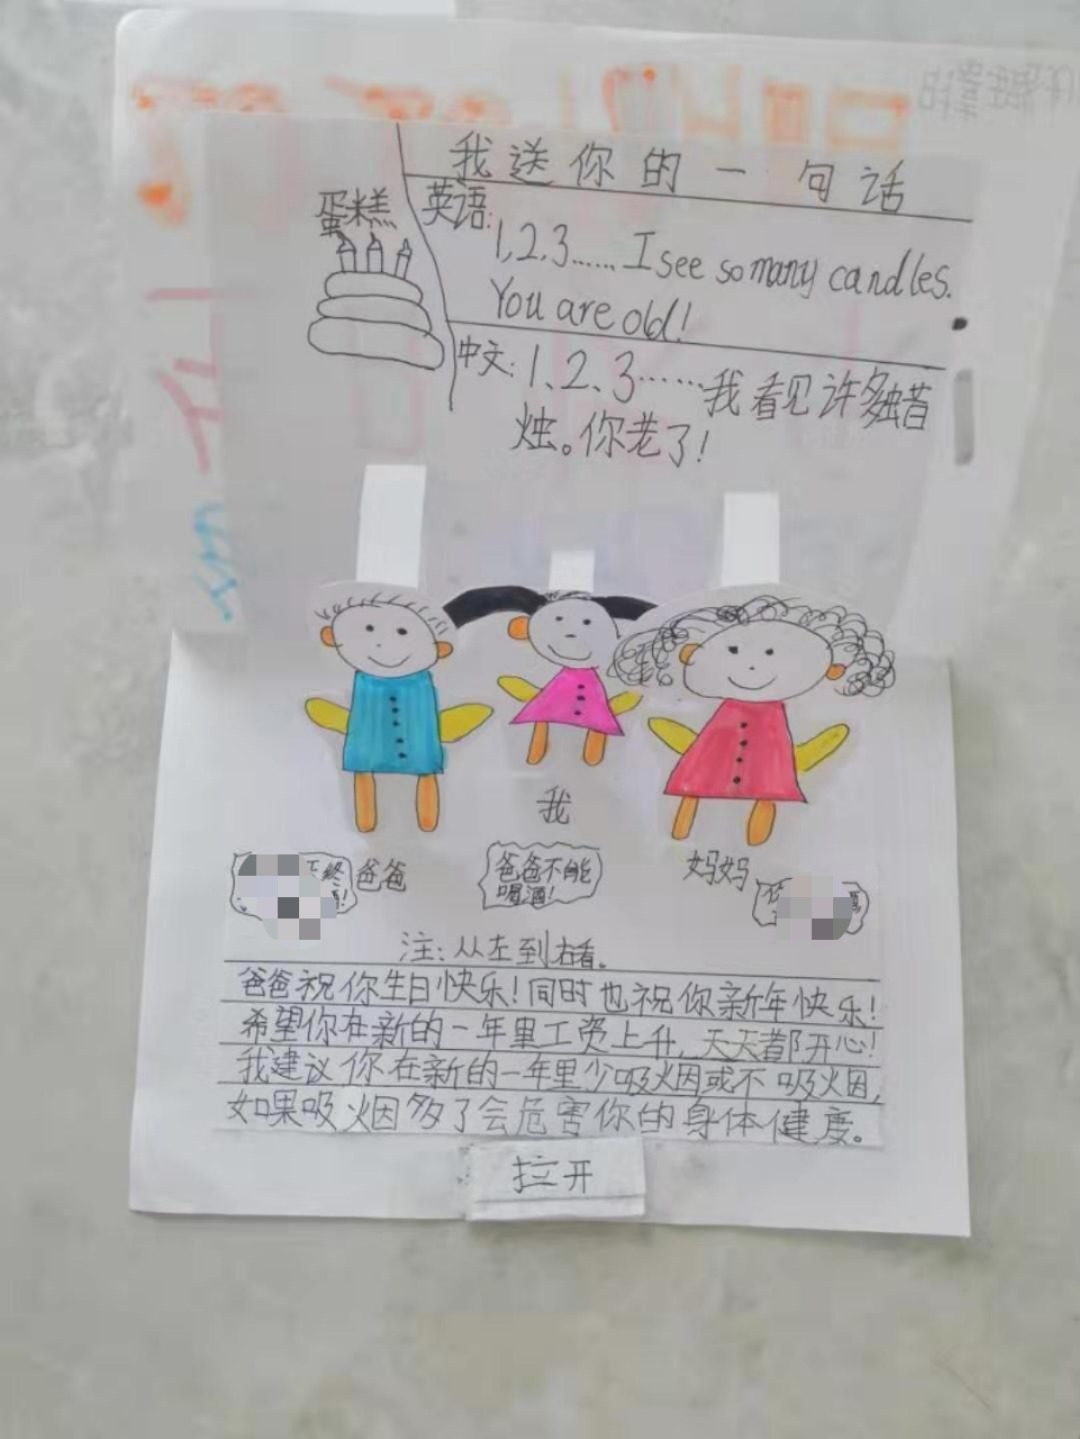 我送你的一句话
蛋糕
英语:
1,2,3......I see so many candles.
You are old!
中文:1、2、3……我看见许多蜡
烛。你老了!
我
爸爸
爸爸不能
喝酒!
妈妈
注:从左到右看。
爸爸祝你生日快乐!同时也祝你新年快乐!
希望你在新的一年里工资上升,天天都开心!
我建议你在新的一年里少吸烟或不吸烟,
如果吸烟多了会危害你的身体健度。
拉开